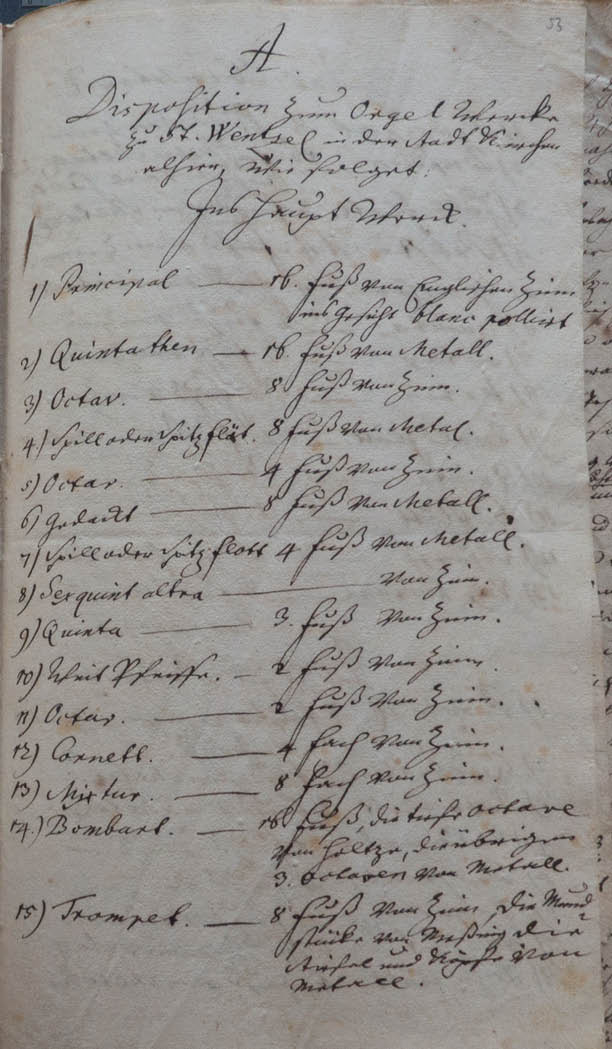 53
A.
Disposition zum Orgel Wercke
zu St. Wentzel in der Stadt Kirchen
alhier, wie folget:
Ins Haupt Werck.
1) Principal — 16. Fuß von Englischen Zinn
ins Gesicht blanc pollirt
2) Quintathen — 16. Fuß von Metall.
3) Octav. — 8 Fuß von Zinn.
4.) Spill oder Spitz flöt. 8 Fuß von Metal.
5) Octav. — 4 Fuß von Zinn.
6) Gedackt — 8 Fuß von Metall.
7) Spill oder Spitz flott 4 Fuß von Metall.
8) Sexquint altra — von Zinn.
9) Quinta — 3. Fuß von Zinn.
10) Weit Pfeiffe. — 2 Fuß von Zinn.
11) Octav. — 2 Fuß von Zinn.
12) Cornett. — 4 fach von Zinn.
13) Mixtur. — 8 fach von Zinn.
14.) Bombart. — 16 Fuß, die tiefe Octave
von Holtze, die übrigen
3. Octaven von Metall.
15) Trompet. — 8 Fuß von Zinn, die Mund
stücke von Meßing die
Stiefel und Köpfe von
Metall.